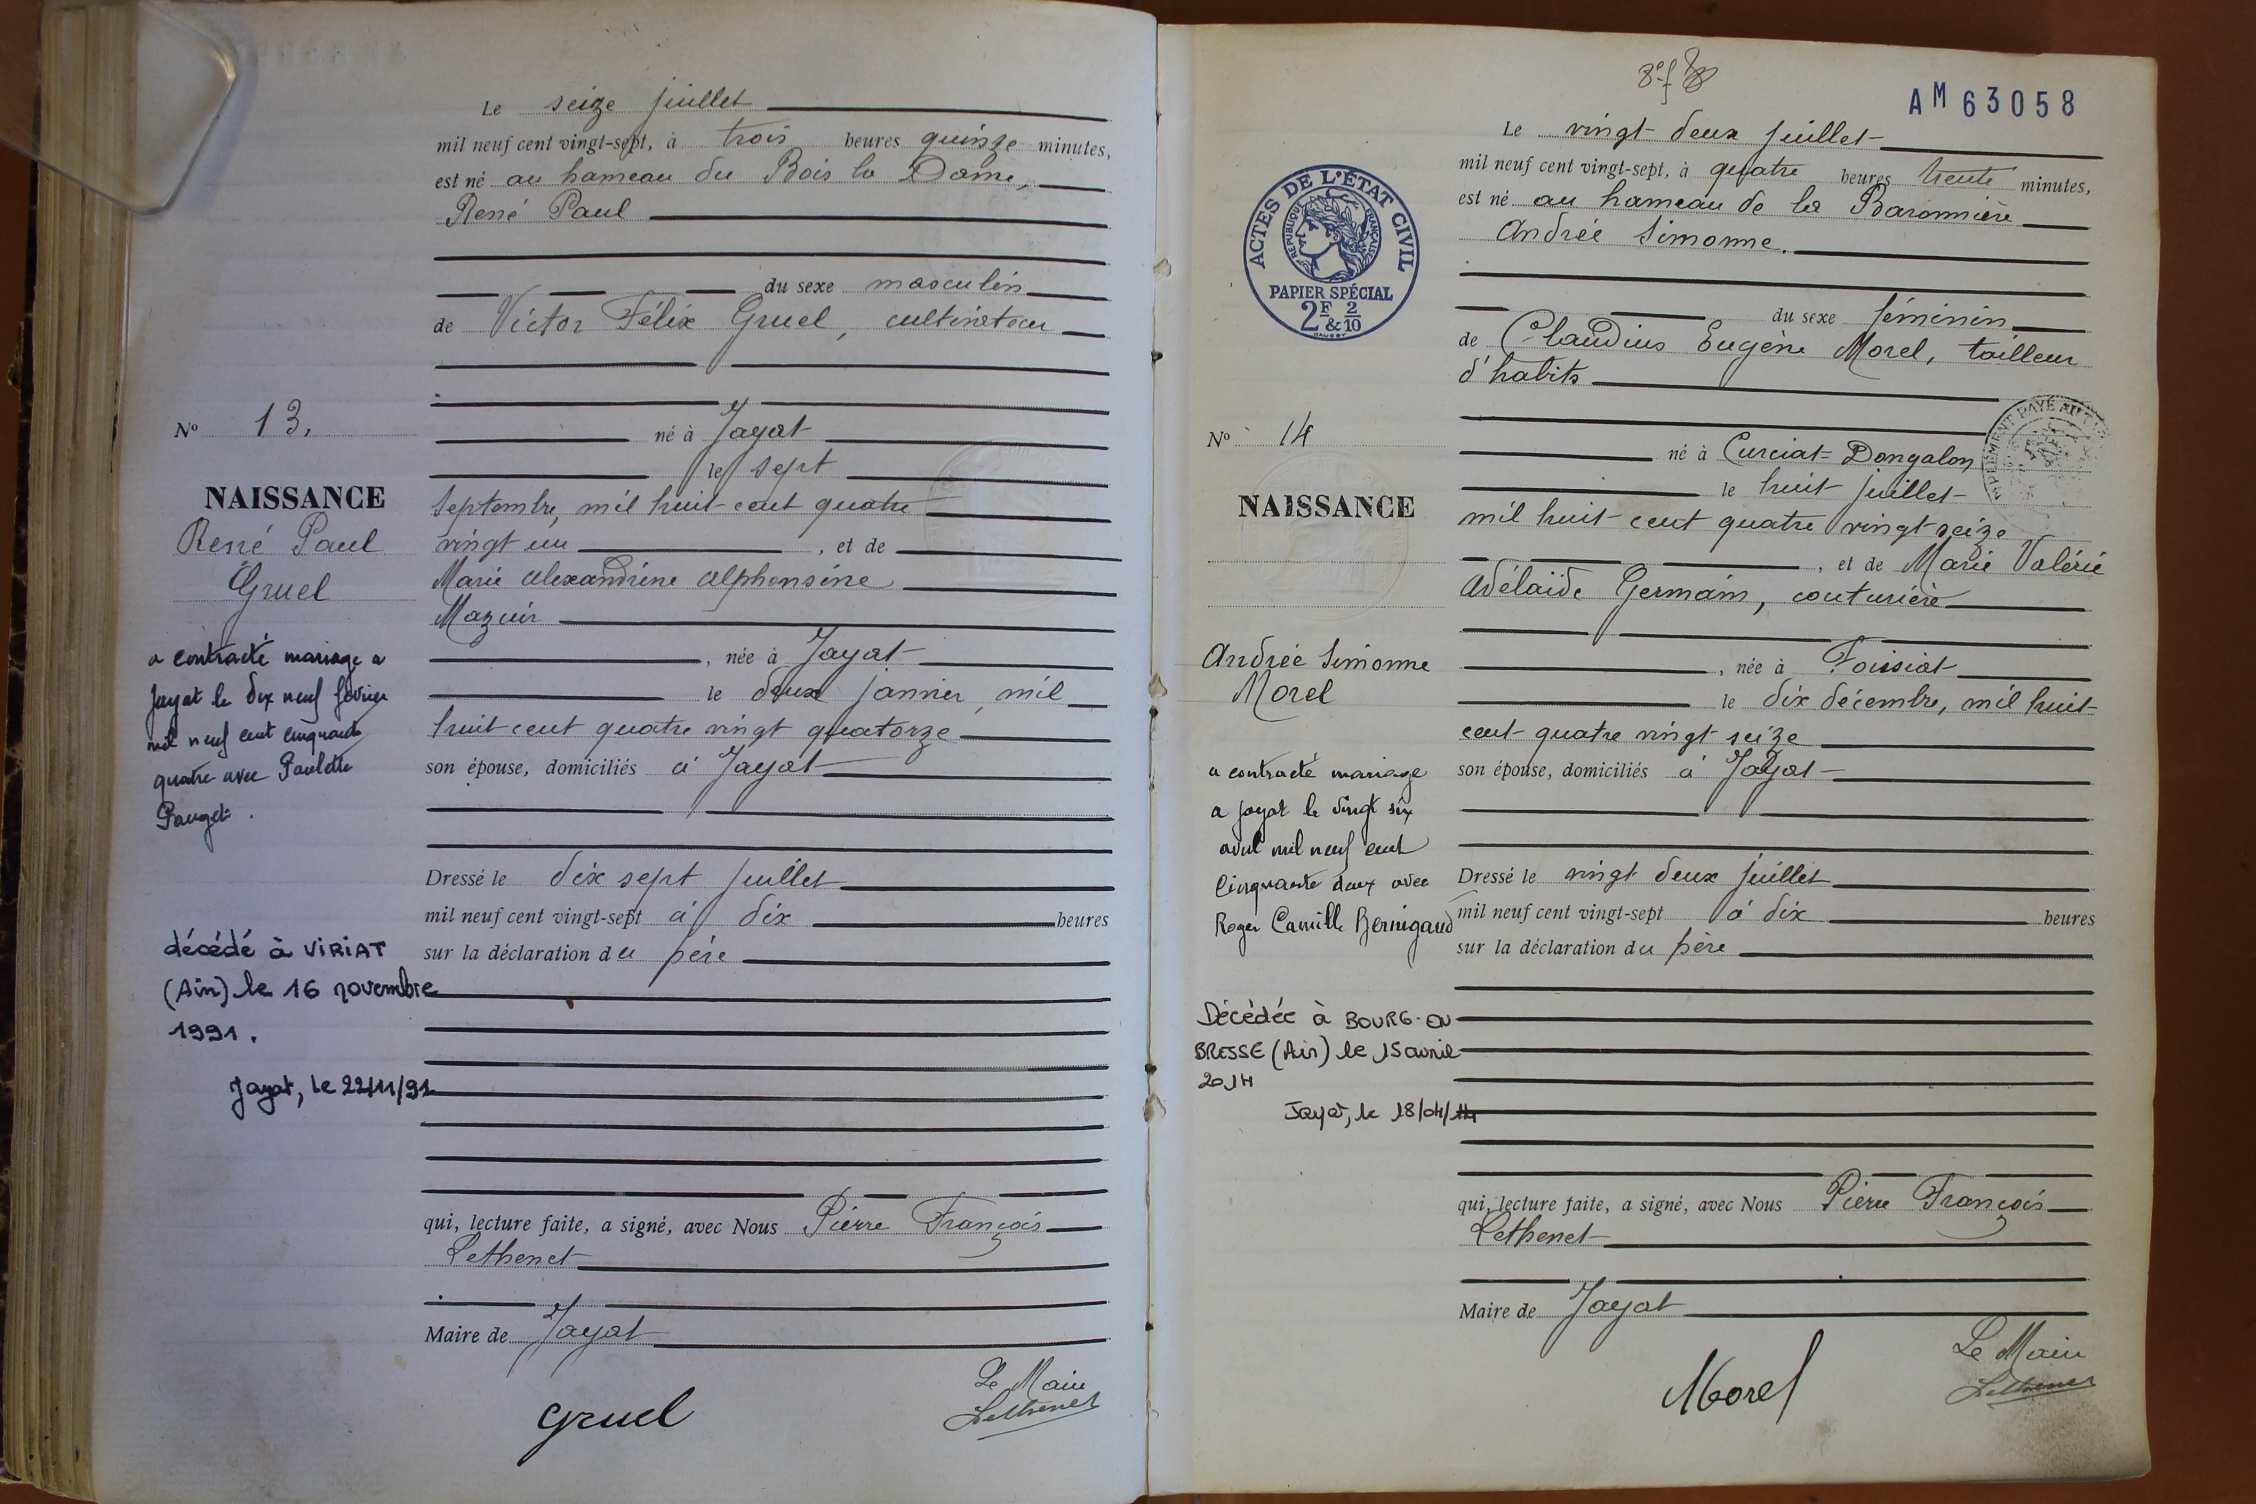 Le seize juillet
mil neuf cent vingt-sept, à trois heures quinze minutes,
est né au hameau du Bois la Dame,
René Paul
du sexe masculin
de Victor Félix Gruel, cultivateur
né à Jayat
le sept
septembre, mil huit cent quatre
vingt un, et de
Marie Alexandrine Alphonsine
Mazuir
, née à Jayat
le deux janvier, mil
huit cent quatre vingt quatorze
son épouse, domiciliés à Jayat
Dressé le dix sept juillet
mil neuf cent vingt-sept à dix heures
sur la déclaration du père
qui, lecture faite, a signé, avec Nous Pierre François
Lethenet
Maire de Jayat
Gruel
Le Maire
Lethenet
No 13.
NAISSANCE
René Paul
Gruel
a contracté mariage a
Jayat le dix neuf février
mil neuf cent cinquante
quatre avec Paulette
Pauget.
décédé à VIRIAT
(Ain) le 16 novembre
1991.
Jayat, le 22/11/91
AM63058
Le vingt deux juillet
mil neuf cent vingt-sept, à quatre heures trente minutes,
est né au hameau de la Baronnière
Andrée Simonne.
du sexe féminin
de Claudius Eugène Morel, tailleur
d'habits
né à Curciat-Dongalon
le huit juillet
mil huit cent quatre vingt seize
, et de Marie Valérie
Adélaïde Germain, couturière
, née à Foissiat
le dix décembre, mil huit
cent quatre vingt seize
son épouse, domiciliés à Jayat
Dressé le vingt deux juillet
mil neuf cent vingt-sept à dix heures
sur la déclaration du père
qui, lecture faite, a signé, avec Nous Pierre François
Lethenet
Maire de Jayat
Morel
Le Maire
Lethenet
ACTES DE L'ÉTAT CIVIL
RÉPUBLIQUE FRANÇAISE
PAPIER SPÉCIAL
2F & 2/10
No 14
NAISSANCE
Andrée Simonne
Morel
a contracté mariage
a Jayat le vingt six
avril mil neuf cent
cinquante deux avec
Roger Camille Bernigaud
Décédée à BOURG-EN
BRESSE (Ain) le 15 avril
2014
Jayat, le 18/04/14